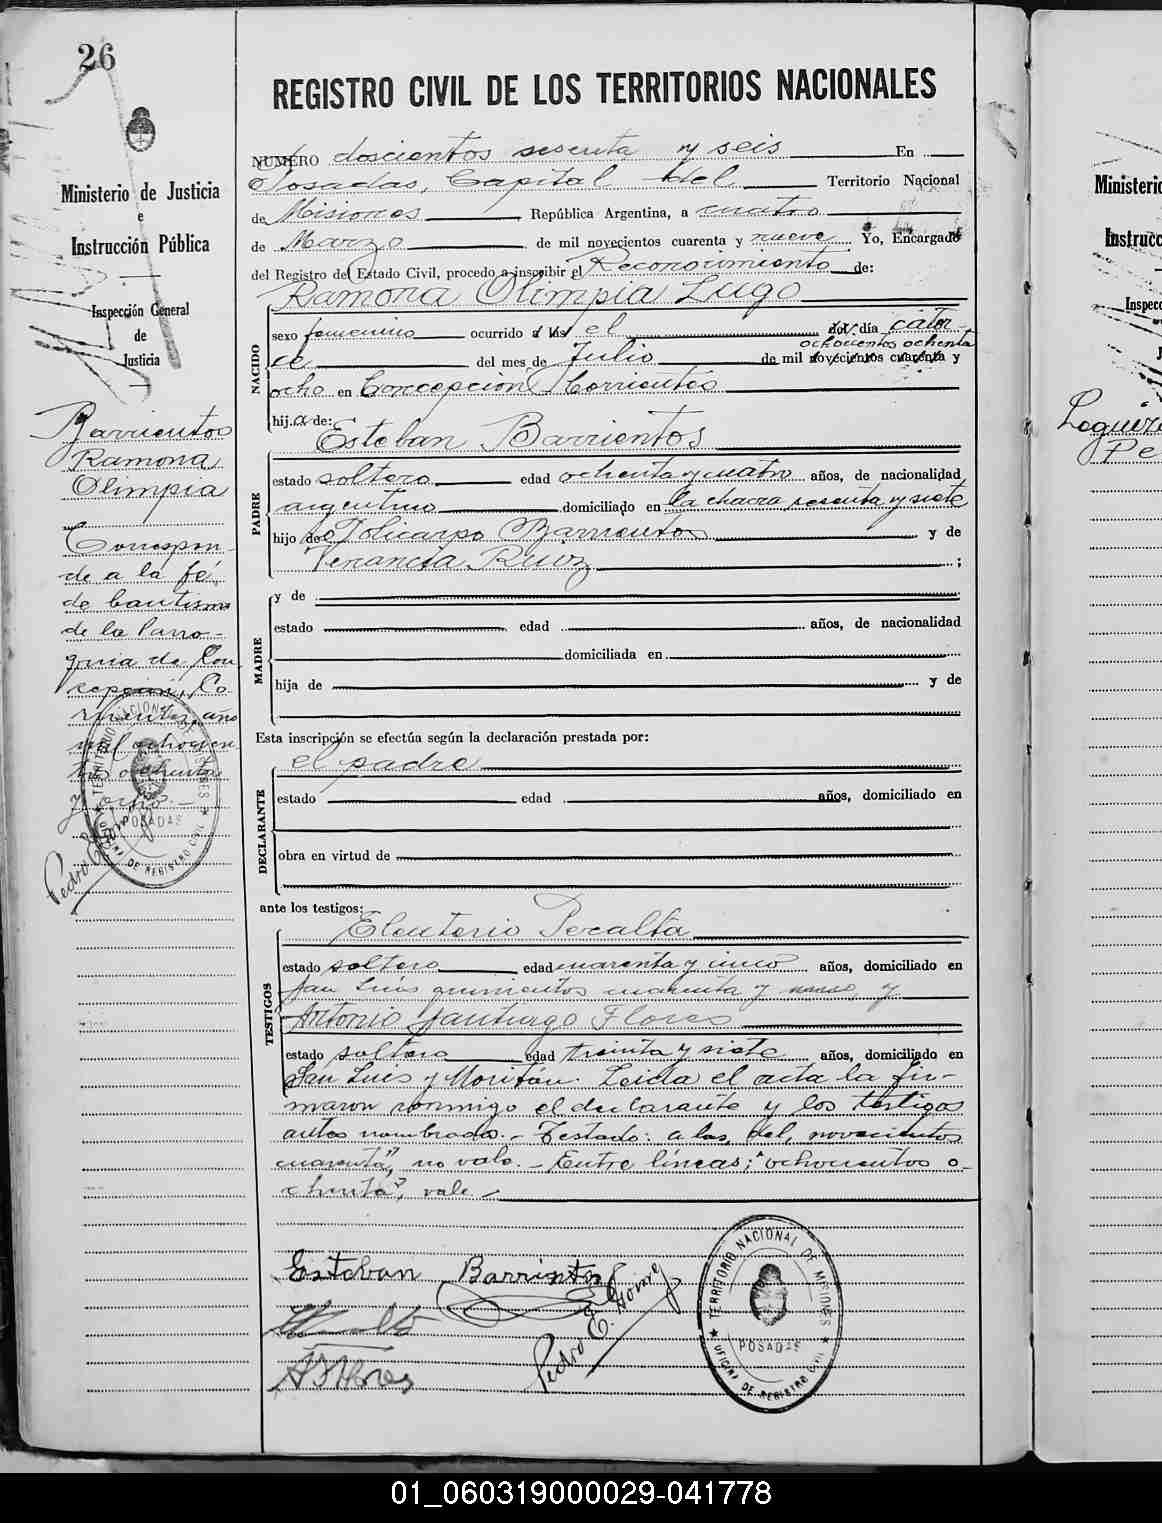 26
Ministerio de Justicia
e
Instrucción Pública
Inspección General
de
Justicia
Barrientos
Ramona
Olimpia
Correspon-
de a la fé
de bautismo
de la Parro-
quia de Con
cepción, Co-
rrientes, año
mil ochocien-
tos ochenta
y ocho.-
TERRITORIO NACIONAL DE MISIONES
POSADAS
OFICINA DE REGISTRO CIVIL
Pedro E.
REGISTRO CIVIL DE LOS TERRITORIOS NACIONALES
NUMERO doscientos sesenta y seis En
Posadas, Capital del Territorio Nacional
de Misiones República Argentina, a cuatro
de Marzo de mil novecientos cuarenta y nueve Yo, Encargado
del Registro del Estado Civil, procedo a inscribir el Reconocimiento de:
Ramona Olimpia Lugo
NACIDO
sexo femenino ocurrido a las el del día cator-
ochocientos ochenta
ce del mes de Julio de mil novecientos cuarenta y
ocho en Concepción, Corrientes
hija de:
Esteban Barrientos
PADRE
estado soltero edad ochenta y cuatro años, de nacionalidad
argentino domiciliado en la chacra sesenta y siete
hijo de Policarpo Barrientos y de
Venancia Ruiz ;
MADRE
y de
estado edad años, de nacionalidad
domiciliada en
hija de y de
Esta inscripción se efectúa según la declaración prestada por:
el padre
DECLARANTE
estado edad años, domiciliado en
obra en virtud de
ante los testigos:
Eleuterio Peralta
TESTIGOS
estado soltero edad cuarenta y cinco años, domiciliado en
San Luis quinientos cuarenta y nueve, y
Antonio Santiurgo Flores
estado soltero edad treinta y siete años, domiciliado en
San Luis y Moritán. Leida el acta la fir-
maron conmigo el declarante y los testigos
antes nombrados.- Testado: a las, del, novecientos
cuarenta", no vale.- Entre líneas; "ochocientos o-
chenta", vale.-
Esteban Barrientos
Pedro E. Home
A S Flores
TERRITORIO NACIONAL DE MISIONES
POSADAS
OFICINA DE REGISTRO CIVIL
Ministerio
Instrucc
Inspec
J
01_060319000029-041778